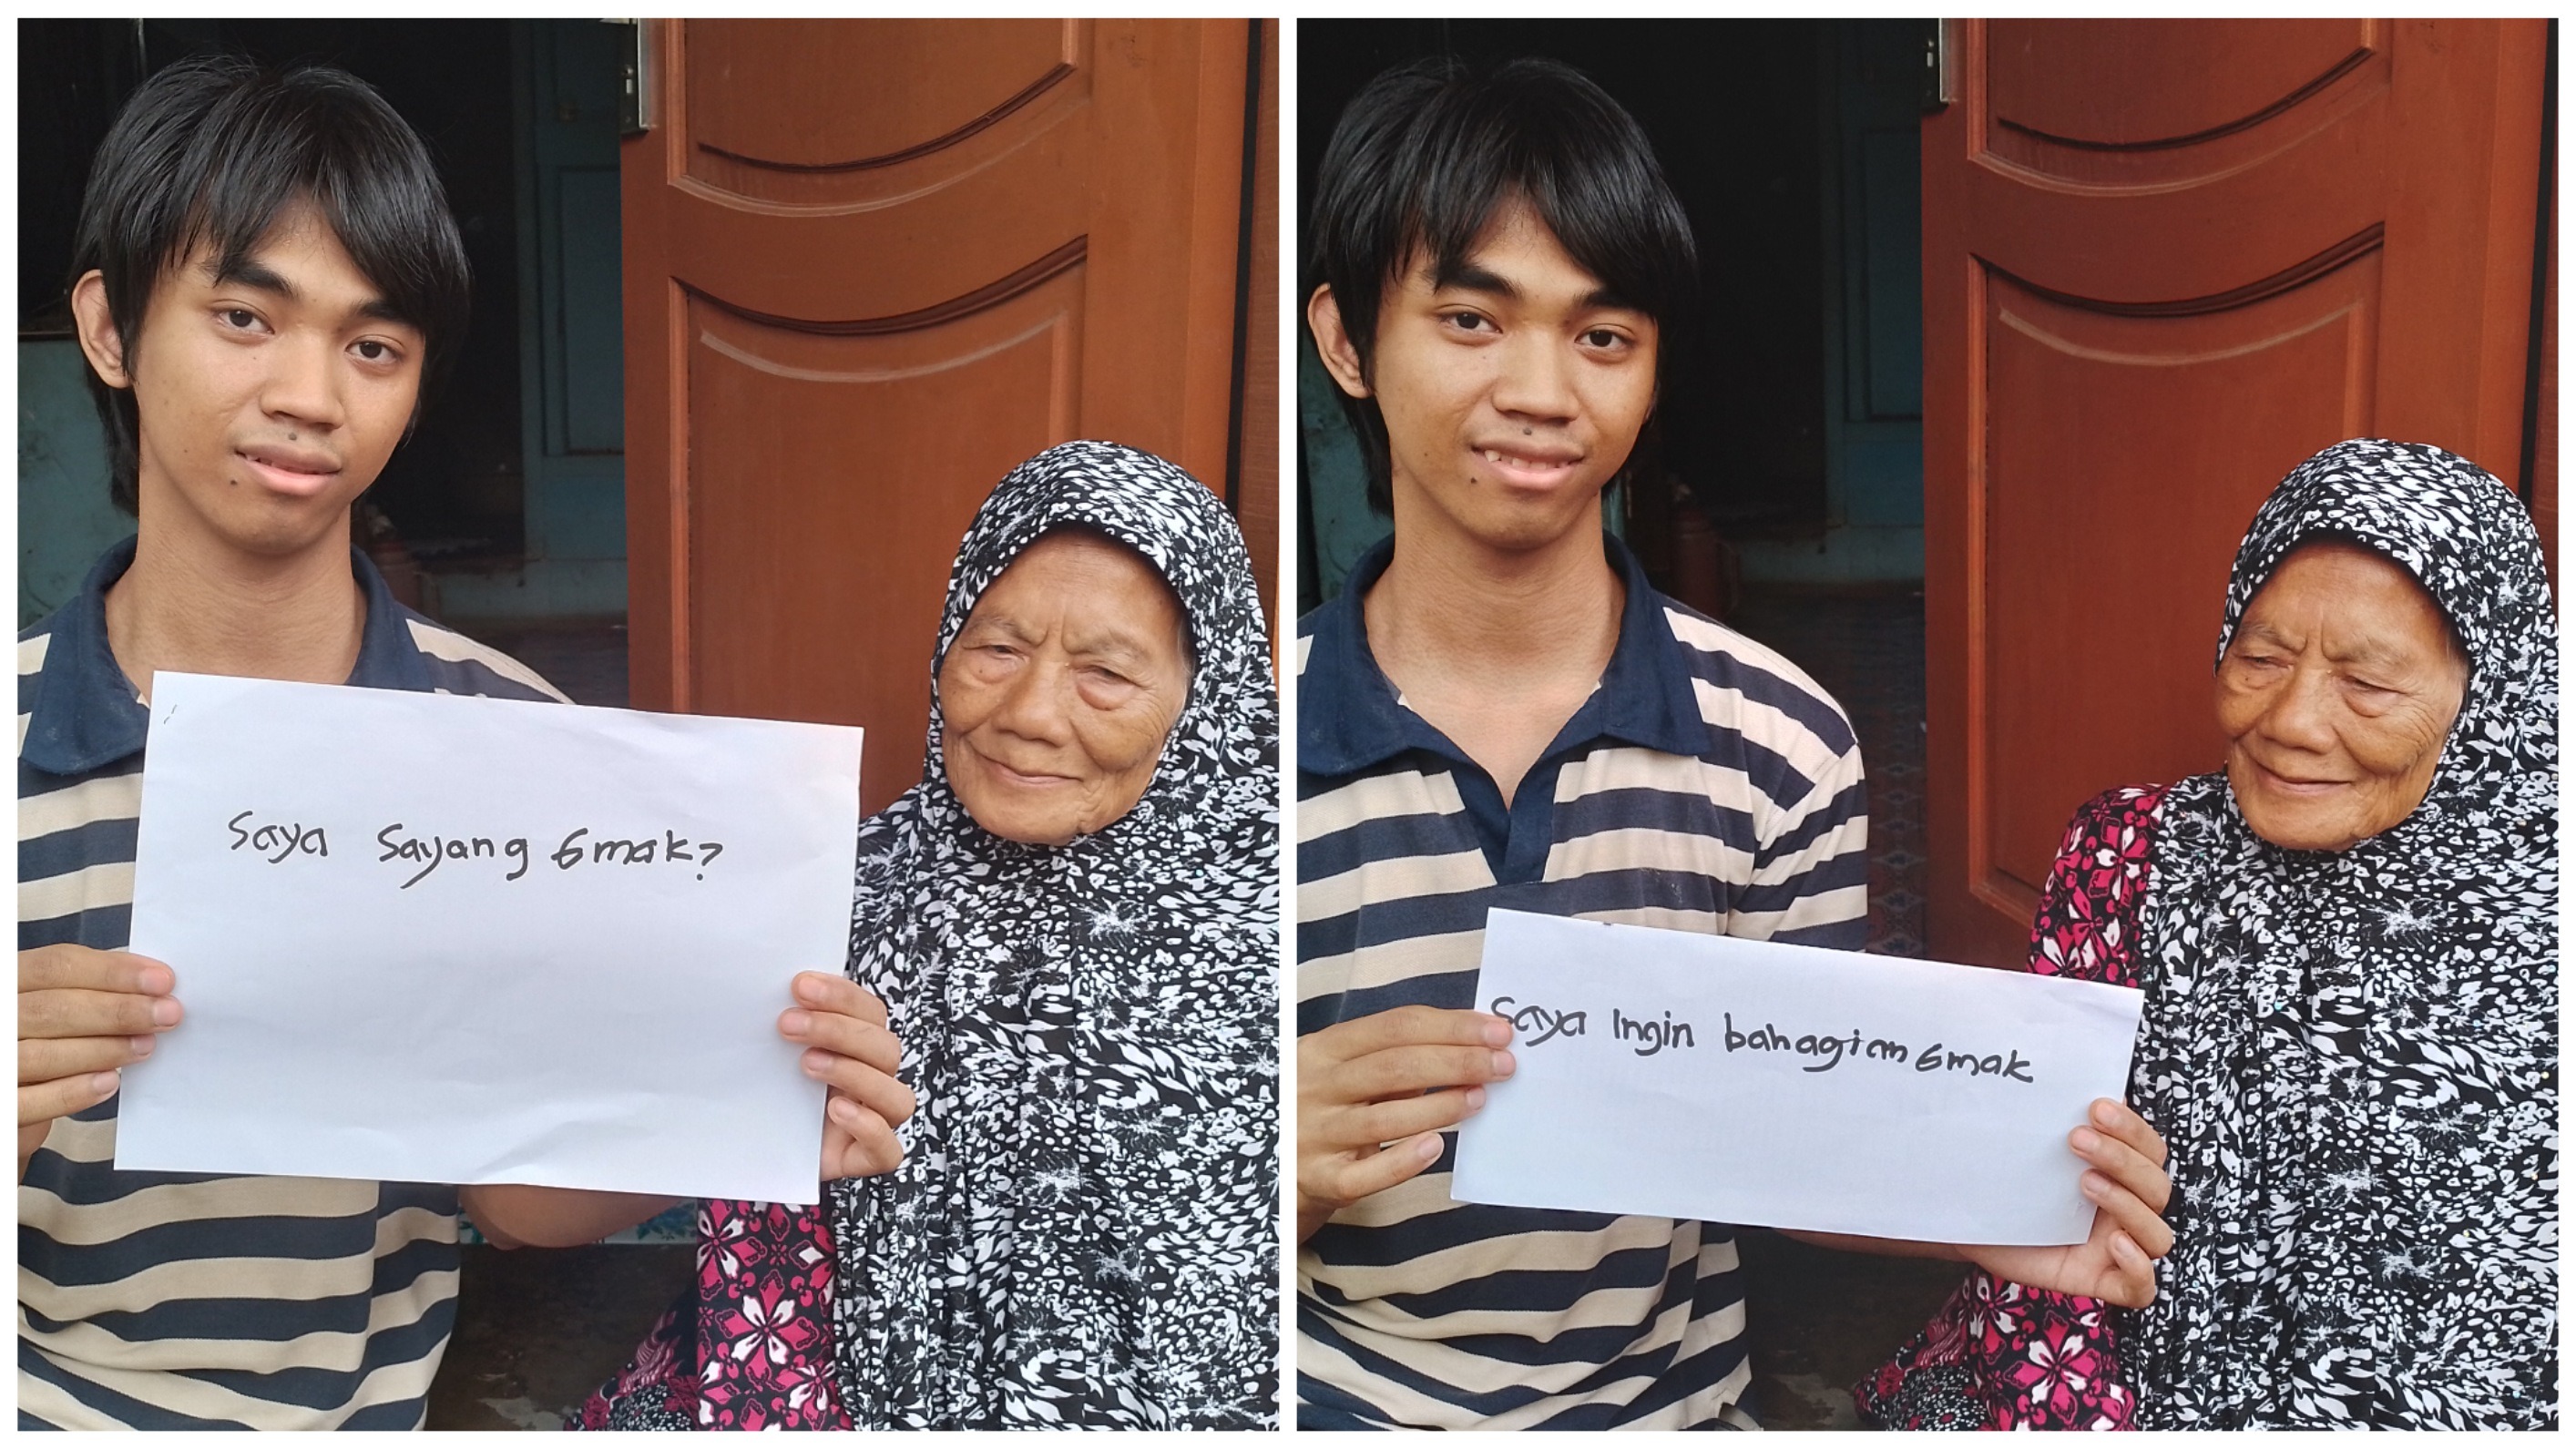 Saya Sayang Emak?
Saya Ingin bahagian Emak